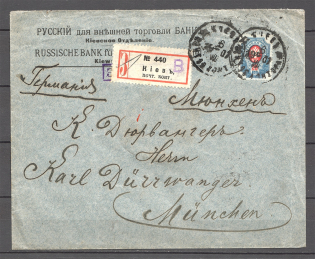 РУССКІЙ для внѣшней торговли БАНКЪ
Кіевское Отдѣленіе
RUSSISCHE BANK
Kiew
№ 440
Кіевъ
ПОЧТ. КОНТ.
Германія
Мюнхенъ
К. Дюрвангеръ
Herrn
Karl Dürrwanger
München